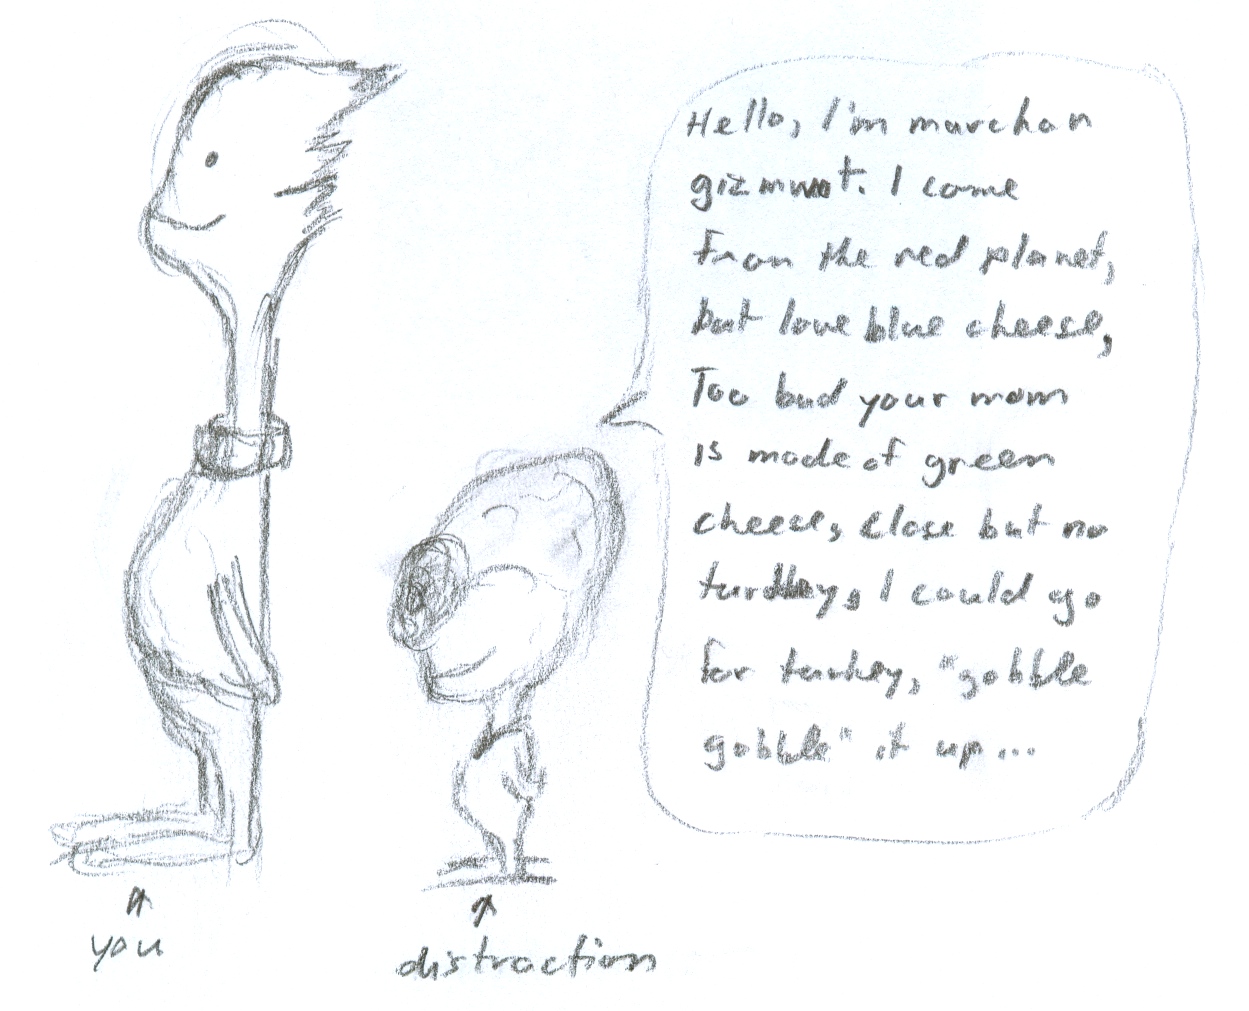 Hello, I'm marchan
gizmwot. I come
from the red planet,
but love blue cheese,
Too bad your mom
is made of green
cheese, close but no
turdkey, I could go
for turkey, "gobble
gobble" it up...
you
distraction